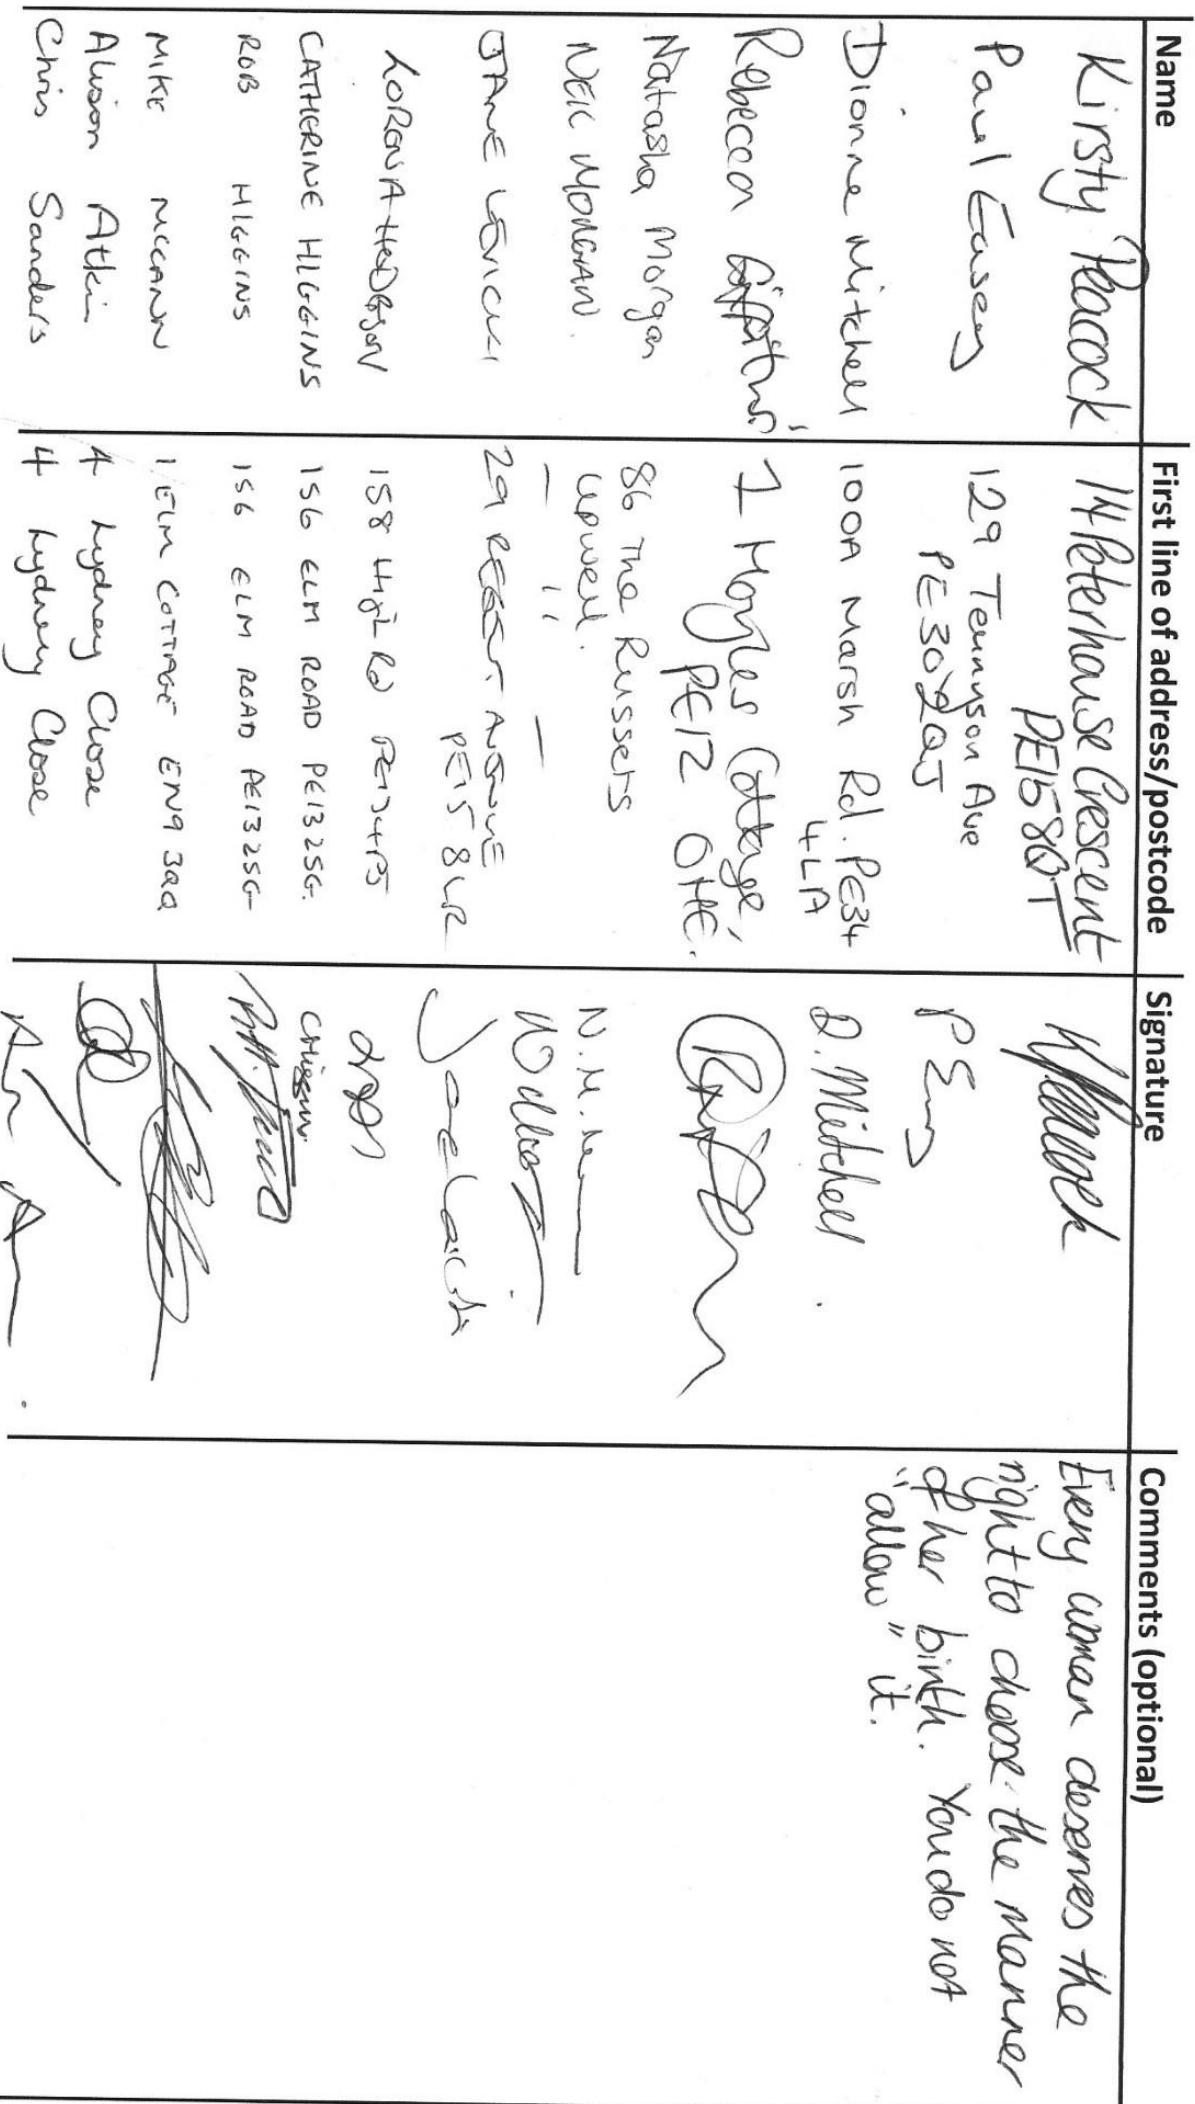 Name First line of address/postcode Signature Comments (optional)
Kirsty Peacock 14 Peterhouse Crescent
PE15 8QT
Every woman deserves the
right to choose the manner
of her birth. You do not
"allow" it.
Paul Easey 129 Tennyson Ave
PE30 2QJ
Dionne Mitchell 100A Marsh Rd. PE34
4LA D. Mitchell
Rebecca 1 Cottage,
PE12 0HE.
Natasha Morgan 86 The Russets
Upwell.
NEIL MORGAN. — " —
JANE 29 REGENT AVENUE
PE15 8LR
LORENA 158 High Rd
CATHERINE HIGGINS 156 ELM ROAD PE13 2SG.
ROB HIGGINS 156 ELM ROAD PE13 2SG
MIKE MCCANN 1 ELM COTTAGE EN9 3QQ
Alison Atkin 4 Lydney Close
Chris Sanders 4 Lydney Close